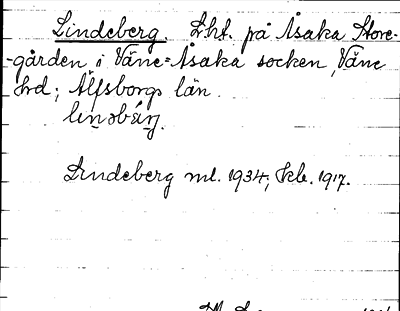 Lindeberg. Lht. på Åsaka Store-
-gården i Väne-Åsaka socken, Väne
hrd; Älfsborgs län.
Lindeberg ml. 1934; kbl. 1917.